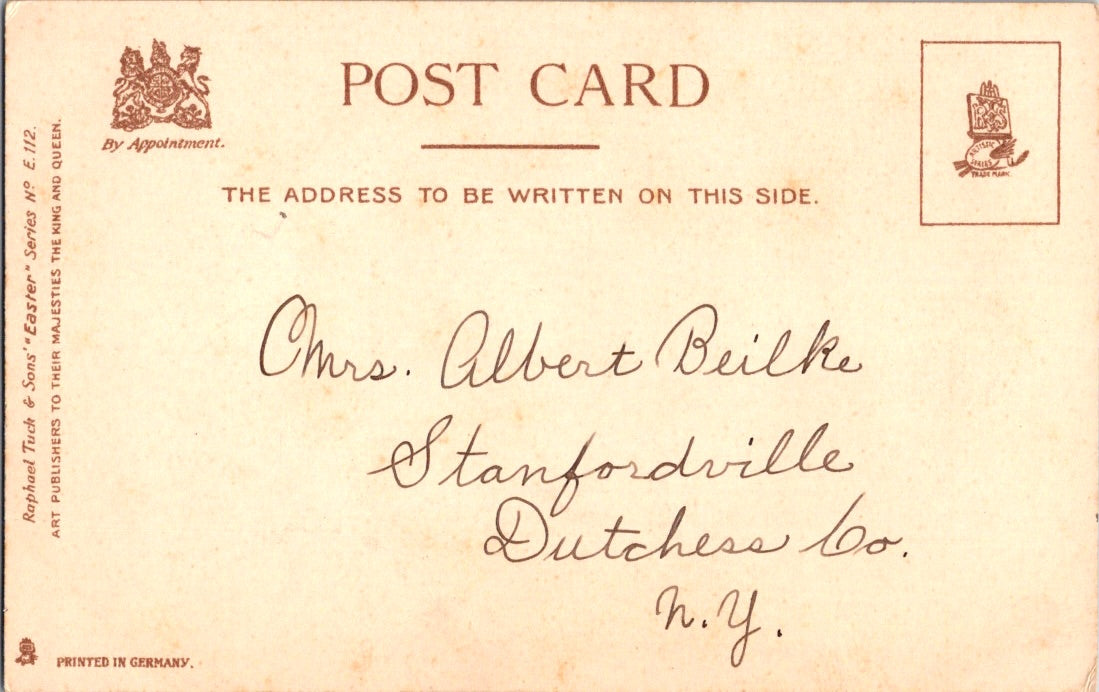 POST CARD
By Appointment.
THE ADDRESS TO BE WRITTEN ON THIS SIDE.
ARTISTIC
SERIES
TRADE MARK.
Raphael Tuck & Sons' "Easter" Series Nº E.112.
ART PUBLISHERS TO THEIR MAJESTIES THE KING AND QUEEN.
Mrs. Albert Beilke
Stanfordville
Dutchess Co.
N.Y.
PRINTED IN GERMANY.